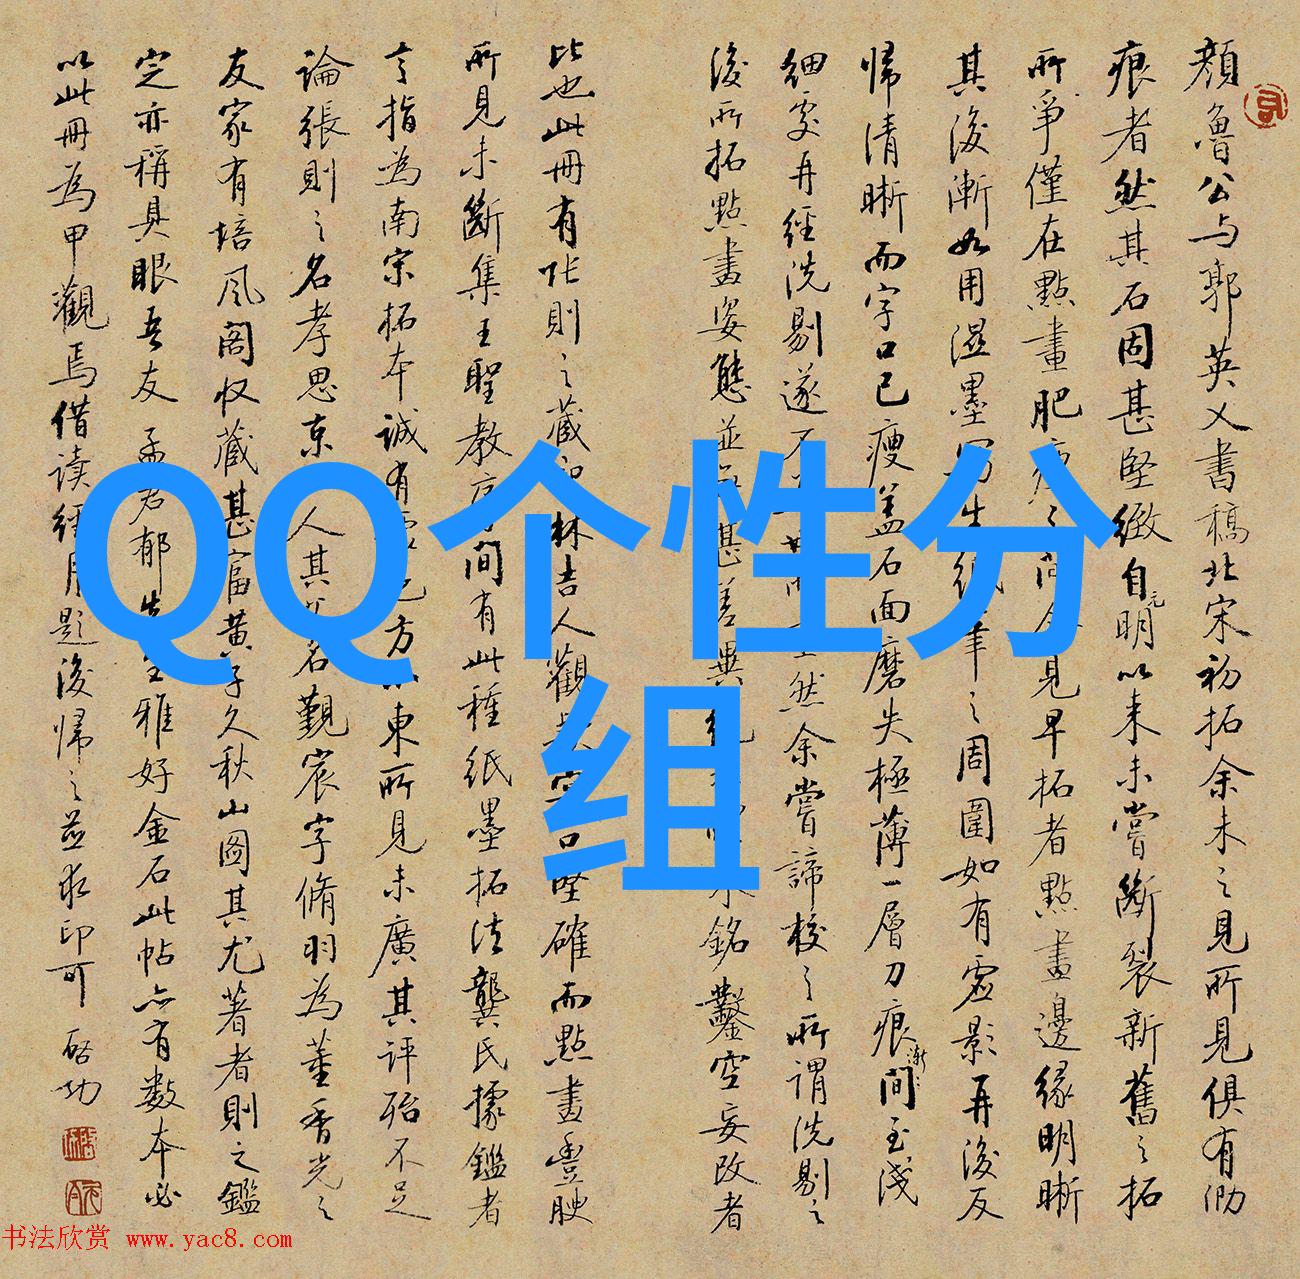 QQ个性分
组
顔魯公与郭英乂書稿北宋初拓余未之見所見俱有泐
痕者然其石固甚堅緻自元明以来未嘗斷裂新舊之拓
所爭僅在點畫肥瘦之間余見早拓者點畫邊緣明晰
其後漸如用濕墨寫生紙筆之周圍如有虛影再後反
歸清晰而字口已瘦蓋石面磨失極薄一層刀痕漸間至淺
細處再經洗剔遂不然余嘗諦校之所謂洗剔之
後所拓點畫姿態並無甚差異銘鑿空妄改者
比也此冊有張則之藏印林吉人觀字口堅確而點畫豊腴
所見未斷集王聖教序間有此種紙墨拓法龔氏據鑑者
亨指為南宋拓本誠有東所見未廣其評殆不足
論張則之名孝思京人其名覲宸字脩羽為董香光之
友家有培風閣收藏甚富黃子久秋山圖其尤著者則之鑑
定亦稱具眼吾友孟君郁先生雅好金石此帖亦有數本必
以此冊為甲觀焉借读經月題後歸之並求印可 启功
书法欣赏 www.yac8.com